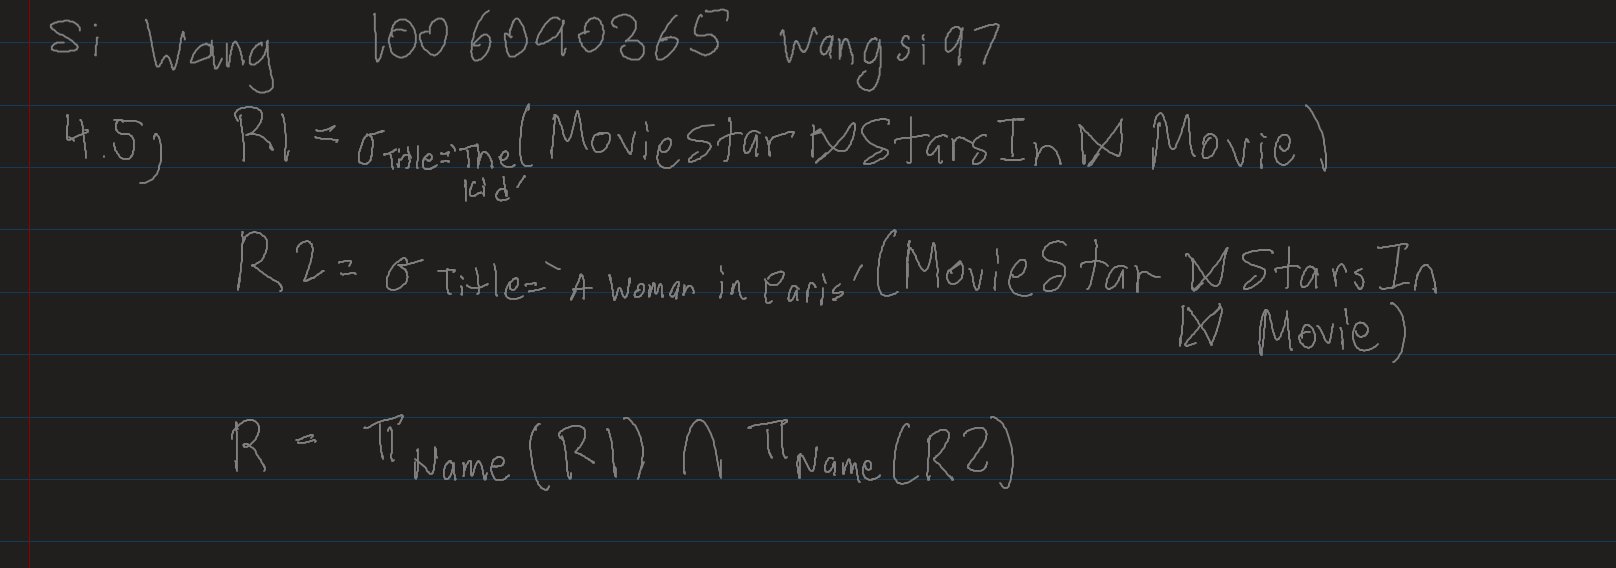 Si Wang 1006090365 wangsi97
4.5) R1 = σ Title='The Kid' (MovieStar ⋈ StarsIn ⋈ Movie)
R2 = σ Title='A Woman in Paris' (MovieStar ⋈ StarsIn
⋈ Movie)
R = π Name (R1) ∩ π Name (R2)